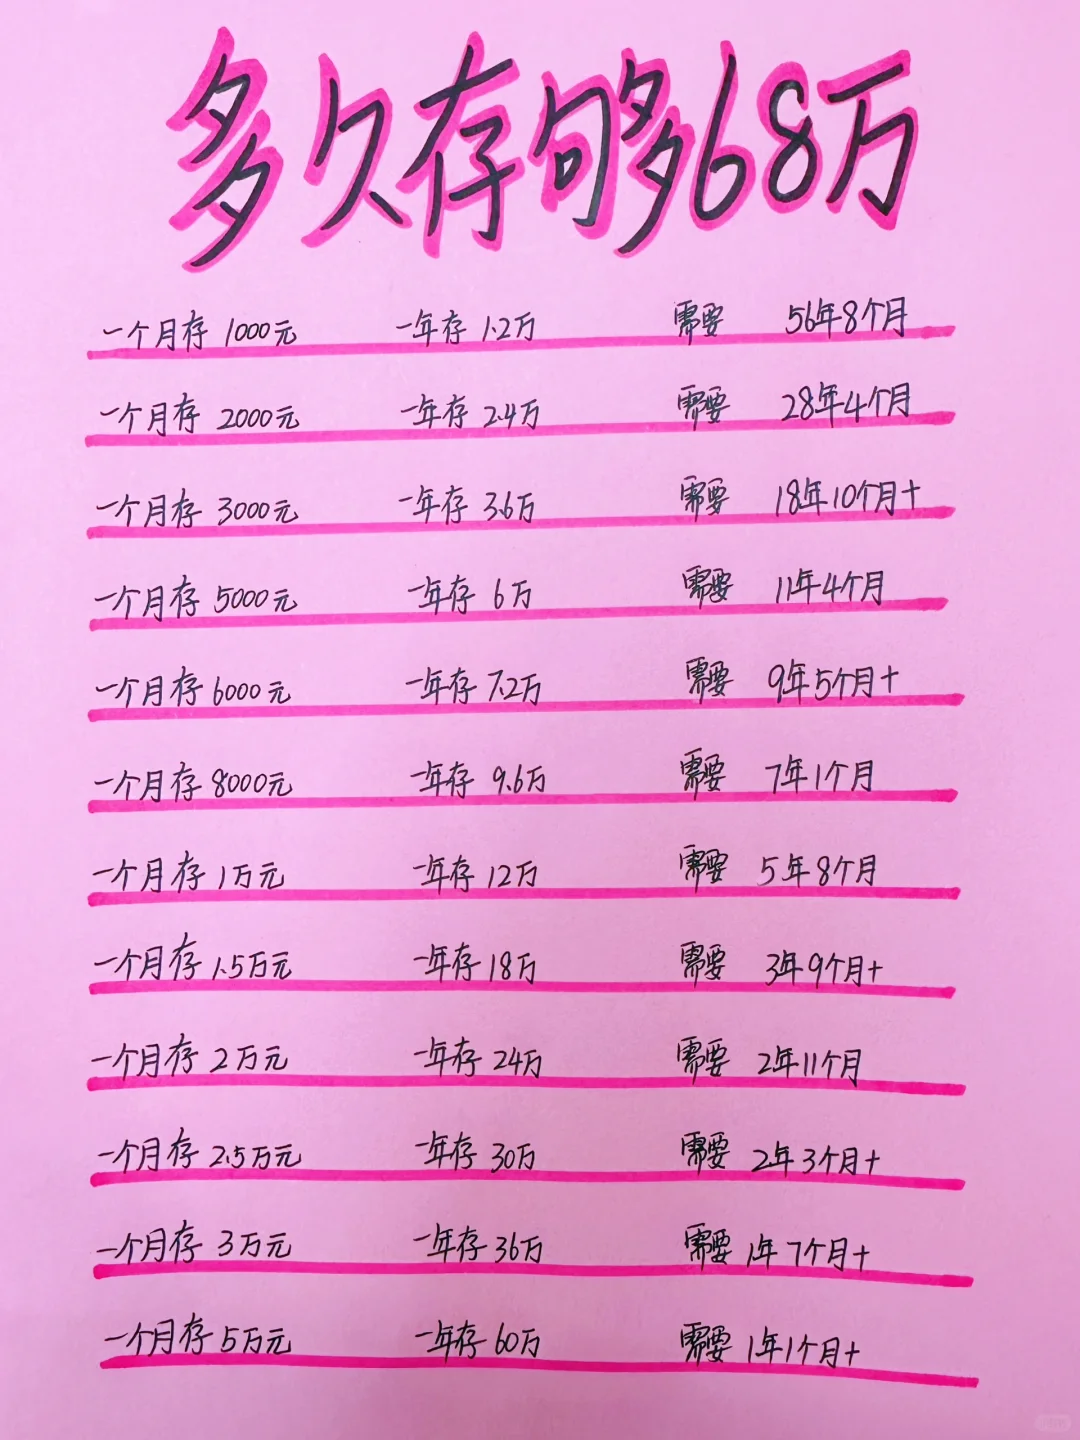 多久存够68万
一个月存 1000元 一年存 1.2万 需要 56年8个月
一个月存 2000元 一年存 2.4万 需要 28年4个月
一个月存 3000元 一年存 3.6万 需要 18年10个月+
一个月存 5000元 一年存 6万 需要 11年4个月
一个月存 6000元 一年存 7.2万 需要 9年5个月+
一个月存 8000元 一年存 9.6万 需要 7年1个月
一个月存 1万元 一年存 12万 需要 5年8个月
一个月存 1.5万元 一年存 18万 需要 3年9个月+
一个月存 2万元 一年存 24万 需要 2年11个月
一个月存 2.5万元 一年存 30万 需要 2年3个月+
一个月存 3万元 一年存 36万 需要 1年7个月+
一个月存 5万元 一年存 60万 需要 1年1个月+